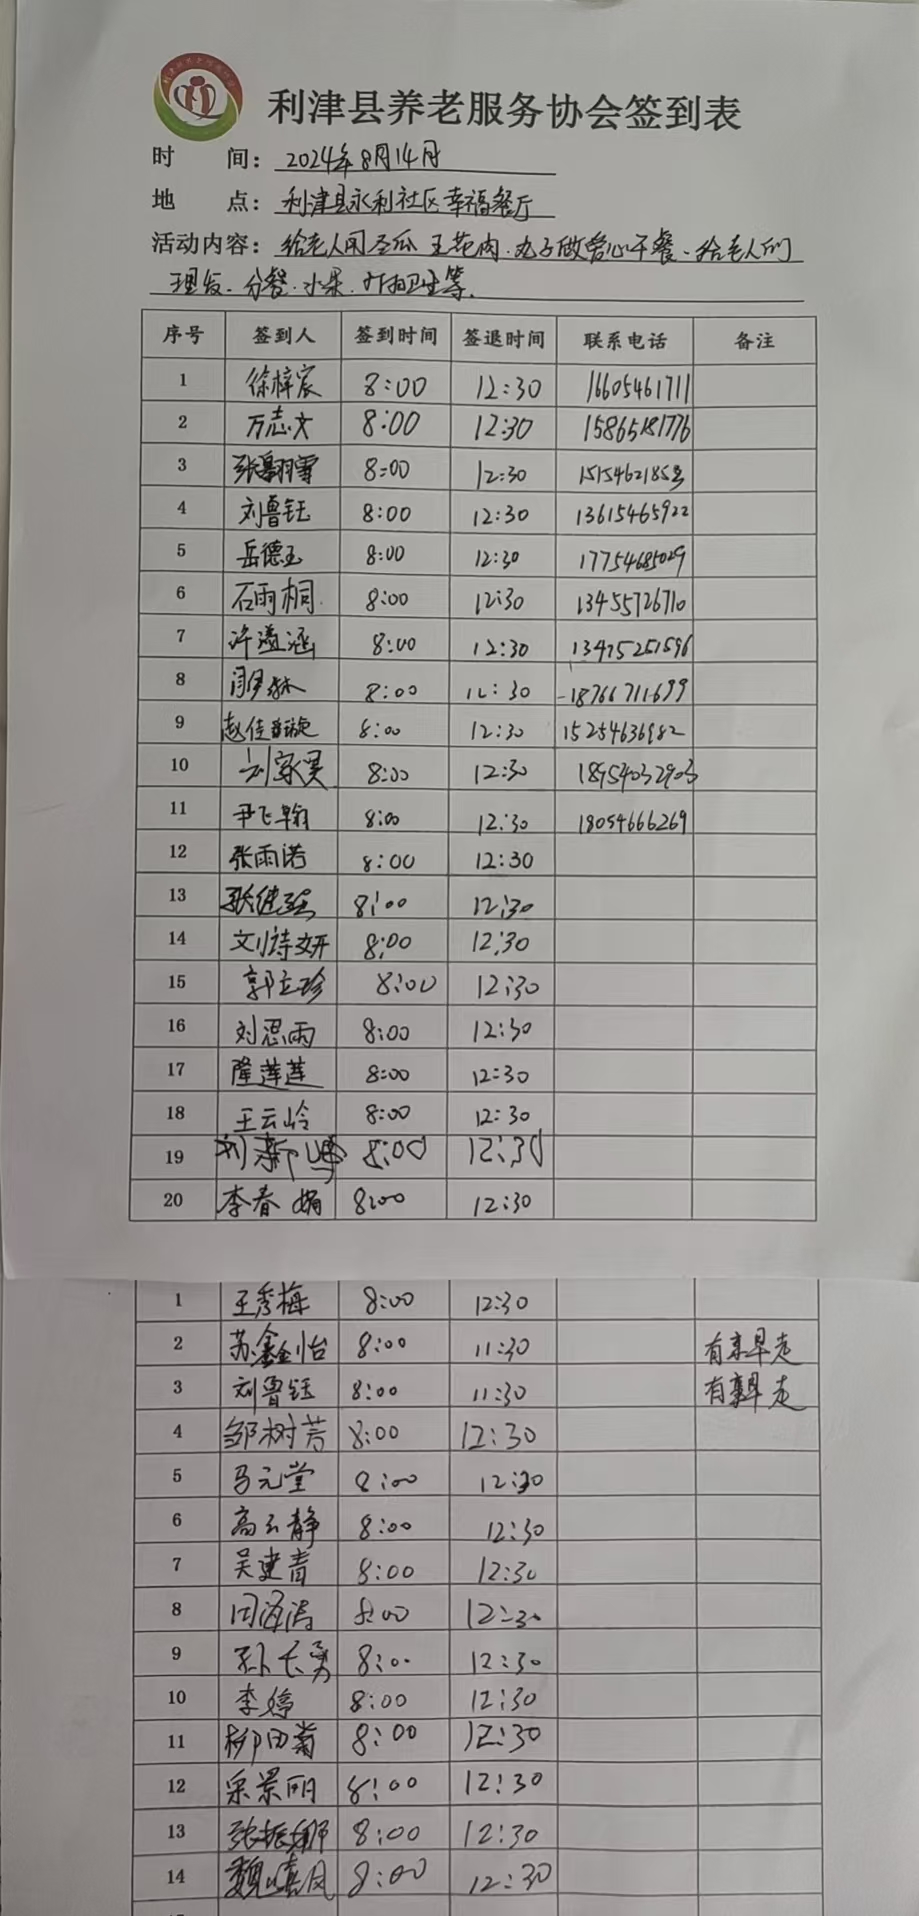 利津县养老服务协会签到表
时 间: 2024年8月14日
地 点: 利津县永利社区幸福餐厅
活动内容: 给老人们 瓜 花肉.丸子做爱心午餐、给老人们
理发、分餐.水果.打扫卫生等.
序号 签到人 签到时间 签退时间 联系电话 备注
1 徐梓宸 8:00 12:30 16605461711
2 万志文 8:00 12:30 15865181776
3 张翾雪 8:00 12:30
4 刘鲁钰 8:00 12:30 13615465922
5 岳德玉 8:00 12:30 17754685029
6 石雨桐 8:00 12:30 13455726710
7 许溢涵 8:00 12:30 13475251596
8 8:00 12:30 18766711699
9 赵佳璇 8:00 12:30 15254636982
10 刘家昊 8:00 12:30 18954032903
11 尹飞翰 8:00 12:30 18054666269
12 张雨诺 8:00 12:30
13 张继强 8:00 12:30
14 刘诗妍 8:00 12:30
15 郭立珍 8:00 12:30
16 刘思雨 8:00 12:30
17 隆莲莲 8:00 12:30
18 王云岭 8:00 12:30
19 刘新 8:00 12:30
20 李春娟 8:00 12:30
1 王秀梅 8:00 12:30
2 苏鑫怡 8:00 11:30 有事早走
3 刘鲁钰 8:00 11:30 有事早走
4 邹树芳 8:00 12:30
5 马元堂 8:00 12:30
6 高云静 8:00 12:30
7 吴建青 8:00 12:30
8 田海涛 8:00 12:30
9 孙长勇 8:00 12:30
10 李婷 8:00 12:30
11 柳田菊 8:00 12:30
12 宋景丽 8:00 12:30
13 张振娜 8:00 12:30
14 魏 凤 8:00 12:30